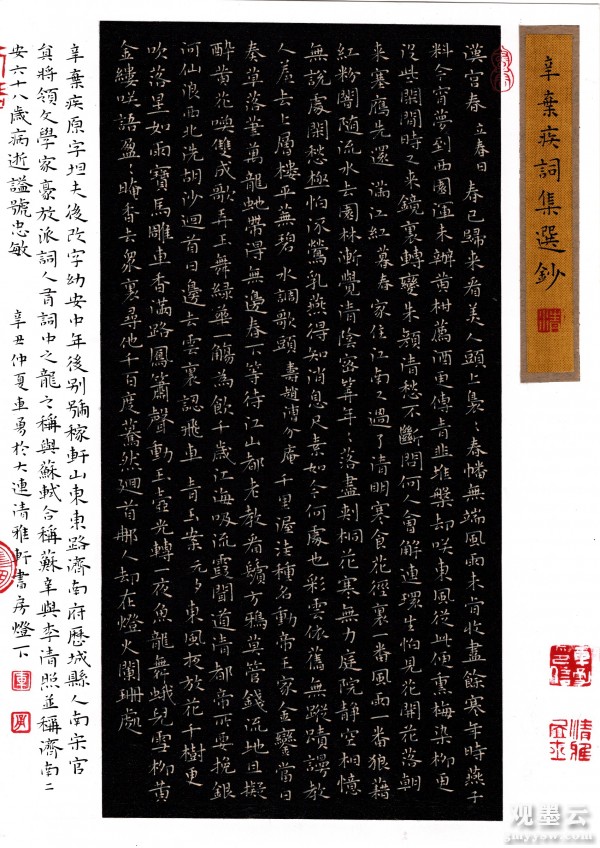 辛棄疾詞集選鈔
漢宮春 立春日 春已歸來看美人頭上裊々春幡無端風雨未肯收盡餘寒年時燕子
料今宵夢到西園渾未辦黃柑薦酒更傳青韭堆盤却咲東風從此便熏梅染柳更
沒些閒閒時又來鏡裏轉變朱顏清愁不斷問何人會解連環生怕見花開花落朝
來塞鴈先還 滿江紅 暮春 家住江南又過了清明寒食花徑裏一番風雨一番狼藉
紅粉闇隨流水去園林漸覺清陰密算年々落盡刺桐花寒無力庭院靜空相憶
無說處閒愁極怕流鶯乳燕得知消息尺素如今何處也彩雲依舊無蹤蹟謾教
人羞去上層樓平無碧 水調歌頭 壽趙漕介庵 千里渥洼種名動帝王家金鑾當日
奏草落筆萬龍虵帶得無邊春下等待江山都老教看鬢方鴉莫管錢流地且擬
醉黃花喚雙成歌弄玉舞綠華一觴為飲千歲江海吸流霞聞道清都帝所要挽銀
河仙浪西北洗胡沙迴首日邊去雲裏認飛車 青玉案 元夕 東風夜放花千樹更
吹落星如雨寶馬雕車香滿路鳳簫聲動玉壺光轉一夜魚龍舞蛾兒雪柳黃
金縷咲語盈々暗香去眾裏尋他千百度驀然廻首那人却在燈火闌珊處
辛棄疾原字坦夫後改字幼安中年後別號稼軒山東東路濟南府歷城縣人南宋官
員將領文學家豪放派詞人有詞中之龍之稱與蘇軾合稱蘇辛與李清照並稱濟南二
安六十八歲病逝謚號忠敏
辛丑仲夏車勇於大連清雅軒書房燈下
观墨云